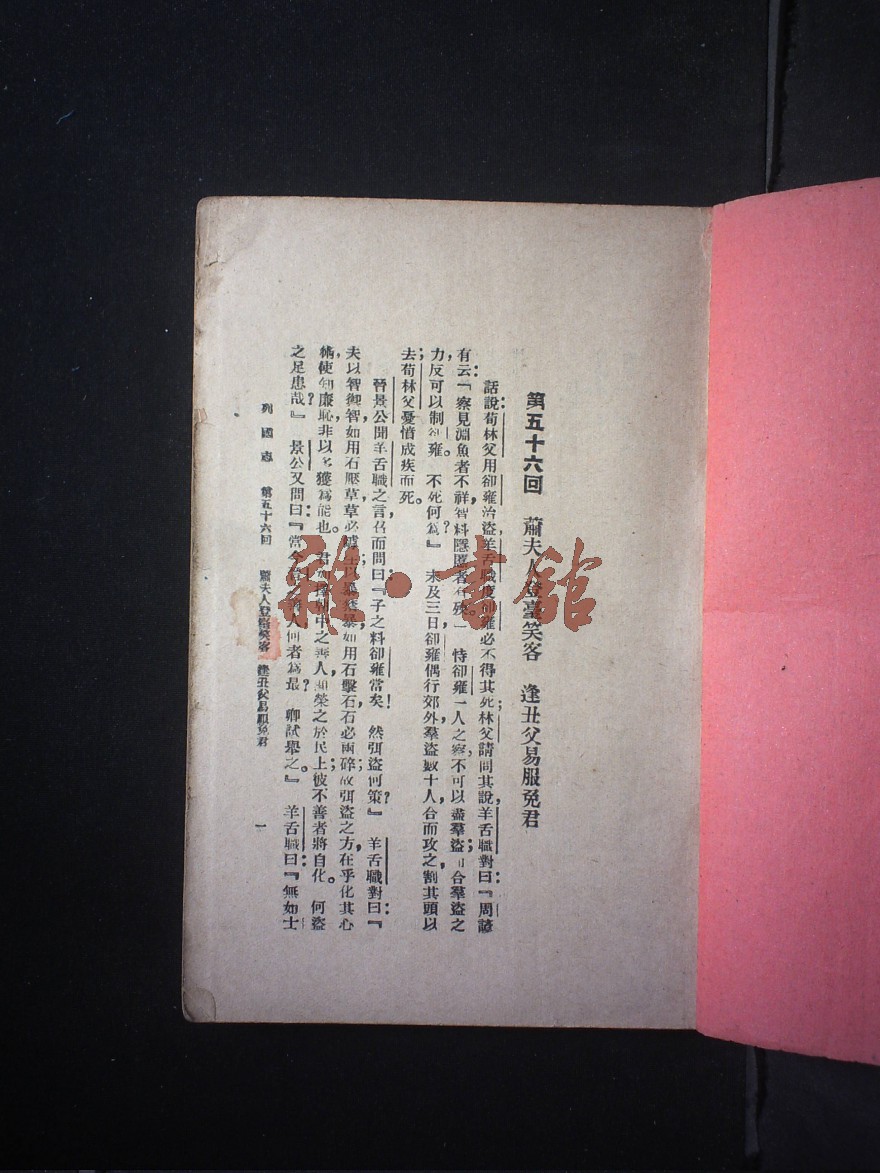 第五十六回　蕭夫人登臺笑客　逢丑父易服免君
話說荀林父用卻雍治盜，羊舌職度卻雍必不得其死；林父請問其說，羊舌職對曰：『周諺
有云：「察見淵魚者不祥，智料隱匿者有殃。」恃卻雍一人之察，不可以盡羣盜；而合羣盜之
力，反可以制卻雍。　不死何爲？』　未及三日，卻雍偶行郊外，羣盜數十人，合而攻之，割其頭以
去；荀林父憂憤成疾而死。
晉景公聞羊舌職之言，召而問曰：『子之料卻雍當矣！　然弭盜何策？』　羊舌職對曰：『
夫以智禦智，如用石壓草，草必罅生；以暴禁暴，如用石擊石，石必兩碎；故弭盜之方，在乎化其心
術，使知廉恥，非以多獲爲能也。　君如擇朝中之善人，顯榮之於民上，彼不善者將自化。　何盜
之足患哉？』　景公又問曰：『當今晉之善人，何者爲最？　卿試舉之。』　羊舌職曰：『無如士
列國志　第五十六回　蕭夫人登臺笑客　逢丑父易服免君　一
雜·書館